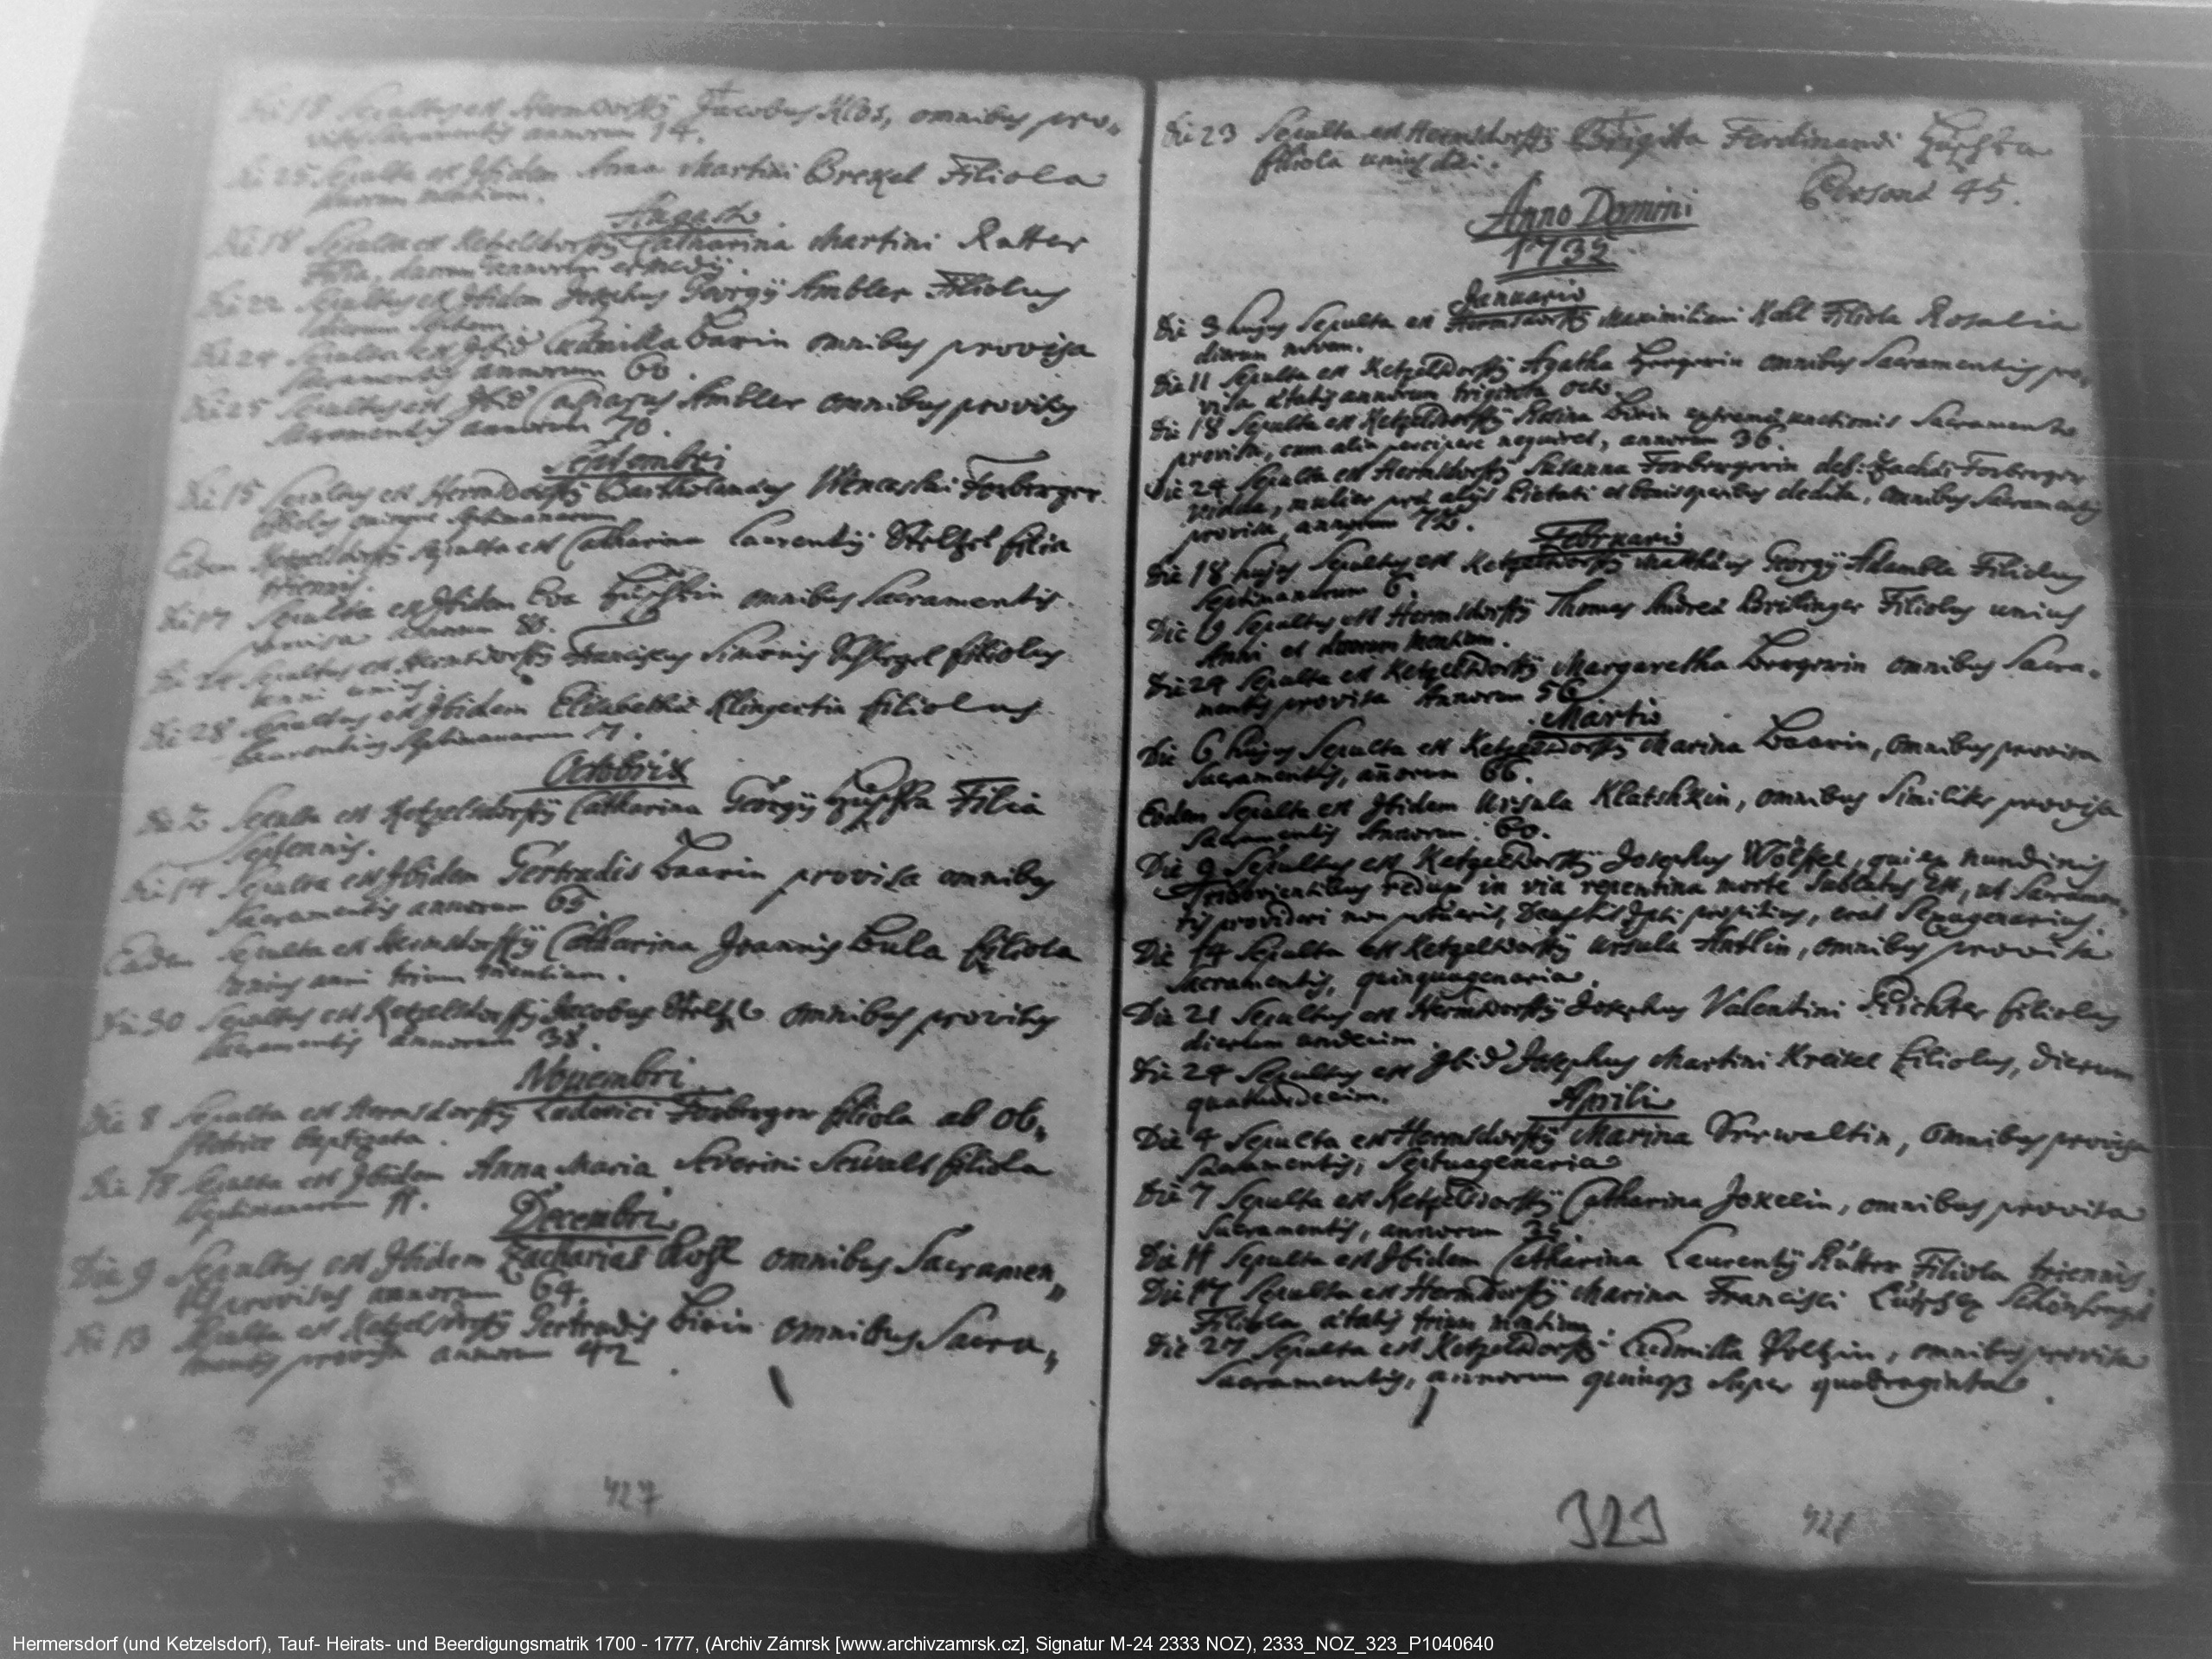 Die 18 Sepultus est Hermsdorffÿ Jacobus Klos, omnibus pro„
visus Sacramentis annorum 14.
Die 25 Sepulta est Ibidem Anna Martini Brexel Filiola
mensium.
Augusti
Die 18 Sepulta est Ketzelsdorffÿ Catharina Martini Rutter
Filia, duorum annorum et medÿ.
Die 22 Sepultus est Ibidem Josephus Georgÿ Ambler Filiolus
dierum
Die 24 Sepulta est Ibid Ludmilla Barin omnibus provisa
Sacramentis annorum 60.
Die 25 Sepultus est Ibid Casparus Ambler omnibus provisus
Sacramentis annorum 70.
Septembri
Die 15 Sepultus est Hermsdorffÿ Bartholomæus Wenceslai Forberger
filiolus quinque Septimanarum
Eadem Ketzelsdorffÿ sepulta est Catharina Laurentÿ Steltzel filia
triennis.
Die 17 Sepulta est Ibidem Eva omnibus Sacramentis
provisa annorum 80.
Die 24 Sepultus est Hermsdorffÿ Franciscus Simonis Schlegel filiolus
anni unius.
Die 28 Sepultus est Ibidem Elisabethæ Klingertin filiolus
Laurentius Septimanarum 7.
Octobris
Die 2 Sepulta est Ketzelsdorffÿ Catharina Georgÿ Filia
Septennis.
Die 14 Sepulta est Ibidem Gertrudis Baarin provisa omnibus
Sacramentis annorum 65.
Eadem Sepulta est Hermsdorffÿ Catharina Joannis Bula filiola
unius anni trium mensium.
Die 30 Sepultus est Ketzelsdorffÿ Jacobus Steltzel omnibus provisus
Sacramentis annorum 38.
Novembri
Die 8 Sepulta est Hermsdorffÿ Ludovici Forberger filiola ab ob„
stetrice baptizata.
Die 18 Sepulta est Ibidem Anna Maria Severini Sewalt filiola
Septimanarum 11.
Decembri
Die 9 Sepultus est Ibidem Zacharias omnibus Sacramen„
tis provisus annorum 64.
Die 13 Sepulta est Ketzelsdorffÿ Gertrudis Birin omnibus Sacra„
mentis provisa annorum 42
427
Die 23 Sepulta est Hermsdorffÿ Brigitta Ferdinandi
filiola unius diei.
Personæ 45.
Anno Domini
1735
Januario
Die 3 hujus Sepulta est Hermsdorffÿ Maximiliani Kahl Filiola Rosalia
dierum novem.
Die 11 Sepulta est Ketzelsdorffÿ Agatha Bergerin omnibus Sacramentis pro„
visa ætatis annorum triginta octo.
Die 18 Sepulta est Ketzelsdorffÿ Birin extremæ unctionis Sacramento
provisa, cum alia percipere nequiret, annorum 36.
Die 24 Sepulta est Hermsdorffÿ Susanna Forbergerin def: Zachæi Forberger
vidua, mulier præ alÿs Pietati et bonis operibus dedita, omnibus Sacramentis
provisa, annorum 72.
Februario
Die 18 hujus Sepultus est Ketzelsdorffÿ Matthæus Georgÿ Adambla Filiolus
Septimanarum 6.
Die Sepultus est Hermsdorffÿ Thomas Andreæ Breilinger Filiolus unius
Anni et duorum Mensium.
Die 24 Sepulta est Ketzelsdorffÿ Margaretha Bergerin omnibus Sacra„
mentis provisa Annorum 56
Martio
Die 6 hujus Sepulta est Ketzelsdorffÿ Marina Baarin, omnibus provisa
Sacramentis, añorum 66.
Eodem Sepulta est Ibidem Ursula Klatshkin, omnibus Similiter provisa
Sacramentis Annorum 60.
Die 9 Sepultus est Ketzelsdorffÿ Josephus Wölffel, qui ex nundinis
redux in via repentina morte Sublatus est, ut Sacramen„
tis provideri non potuerit, Deus sit Ipsi propitius, erat Sexagenarius.
Die 14 Sepulta est Ketzelsdorffÿ Ursula Antlin, omnibus provisa
Sacramentis, quinquagenaria.
Die 21 Sepultus est Hermsdorffÿ Josephus Valentini Richter filiolus
dierum undecim.
Die 24 Sepultus est Ibid Josephus Martini Kreisel Filiolus, dierum
quatuordecim.
Aprili
Die 4 Sepulta est Hermsdorffÿ Marina Verwaltin, omnibus provisa
Sacramentis, Septuagenaria
Die 7 Sepulta est Ketzelsdorffÿ Catharina Joxelin, omnibus provisa
Sacramentis, annorum 35.
Die 11 Sepulta est Ibidem Catharina Laurentÿ Rutter Filiola triennis.
Die 17 Sepulta est Hermsdorffÿ Marina Francisci
Filiola ætatis trium mensium.
Die 27 Sepulta est Ketzelsdorffÿ Ludmilla Poltzin, omnibus provisa
Sacramentis, annorum quinq3 super quadraginta.
323
428
Hermersdorf (und Ketzelsdorf), Tauf- Heirats- und Beerdigungsmatrik 1700 - 1777, (Archiv Zámrsk [www.archivzamrsk.cz], Signatur M-24 2333 NOZ), 2333_NOZ_323_P1040640